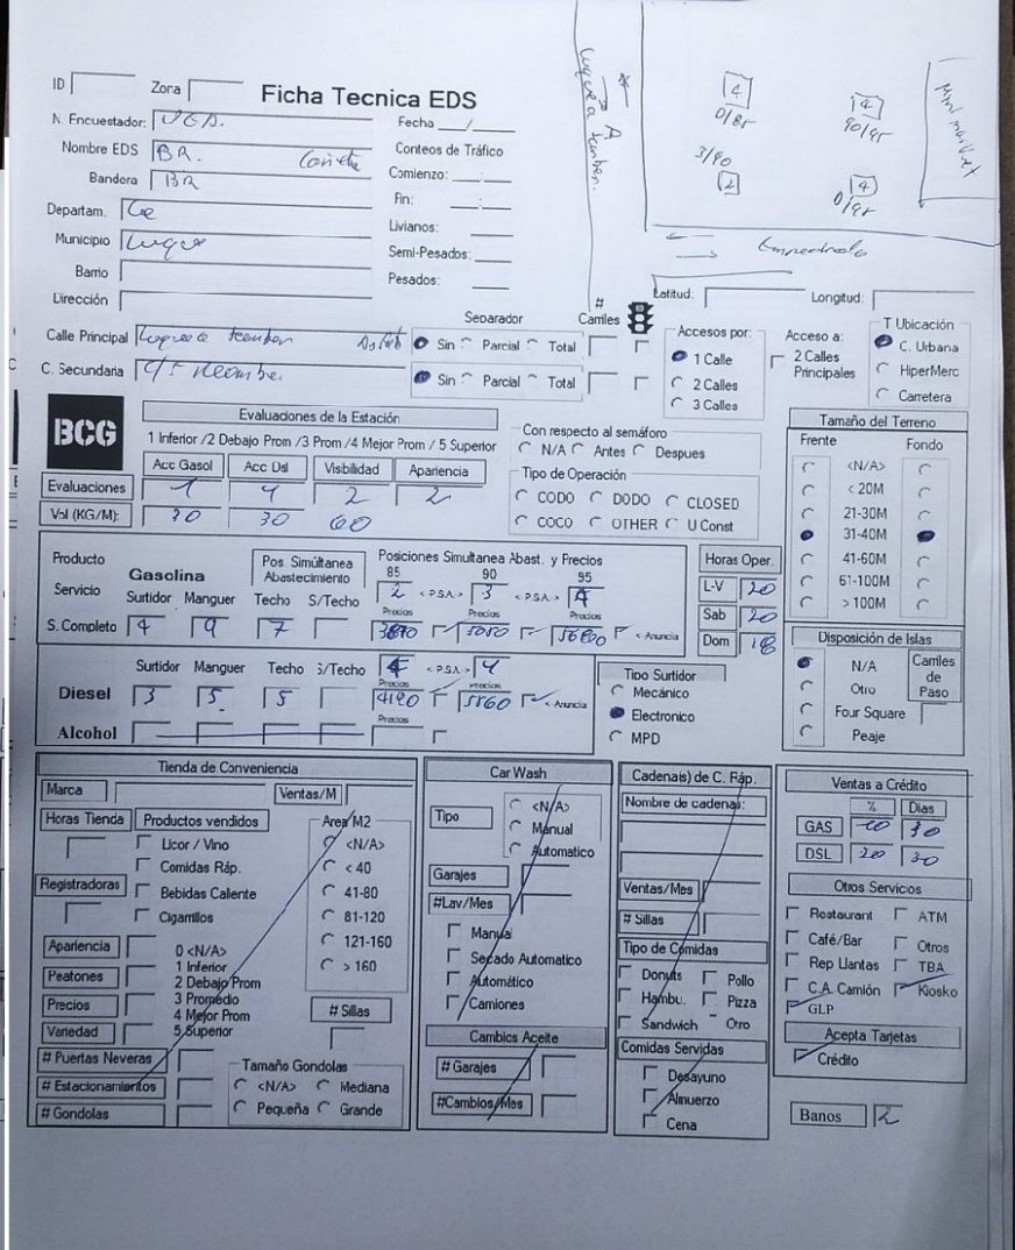 4
0/85
4
90/95
Mini market
Luque a
3/90
2
4
0/95
Empedrado
ID
Zora
Ficha Tecnica EDS
N. Encuestador:
Fecha __/__
Nombre EDS BR.
Conteos de Tráfico
Bandera BR
Comienzo: __:__
Departam. Ce
Fin: __:__
Municipio Luque
Livianos:
Semi-Pesados:
Barrio
Pesados:
Dirección
Latitud:
Longitud:
Separador
# Carriles
Calle Principal Luque a
Sin Parcial Total
C. Secundaria
Sin Parcial Total
Accesos por:
1 Calle
2 Calles
3 Calles
Acceso a:
2 Calles Principales
T Ubicación
C. Urbana
HiperMerc
Carretera
BCG
Evaluaciones de la Estación
1 Inferior /2 Debajo Prom /3 Prom /4 Mejor Prom / 5 Superior
Acc Gasol Acc Dsl Visibilidad Apariencia
Evaluaciones 1 4 2 2
Vol (KG/M): 30 30 60
Con respecto al semáforo
N/A Antes Despues
Tipo de Operación
CODO DODO CLOSED
COCO OTHER U Const
Tamaño del Terreno
Frente Fondo
<N/A>
< 20M
21-30M
31-40M
41-60M
61-100M
> 100M
Producto
Servicio
Gasolina
Pos. Simúltanea Abastecimiento
Posiciones Simultanea Abast. y Precios
85 90 95
Surtidor Manguer Techo S/Techo
2 < P.S.A.> 3 < P.S.A.> 4
Precios Precios Precios
S. Completo 4 9 7 5050 < Anuncia
Horas Oper.
L-V 20
Sab 20
Dom 18
Surtidor Manguer Techo S/Techo
4 < P.S.A.> 4
Precios Precios
Diesel 3 5 5 4120 5560 < Anuncia
Precios
Alcohol
Tipo Surtidor
Mecánico
Electronico
MPD
Disposición de Islas
N/A
Otro
Four Square
Peaje
Carriles de Paso
Tienda de Conveniencia
Marca
Ventas/M
Horas Tienda
Productos vendidos
Licor / Vino
Comidas Ráp.
Bebidas Caliente
Cigarrillos
Registradoras
Area M2
<N/A>
< 40
41-80
81-120
121-160
> 160
Apariencia
Peatones
Precios
Variedad
0 <N/A>
1 Inferior
2 Debajo Prom
3 Promedio
4 Mejor Prom
5 Superior
# Sillas
# Puertas Neveras
# Estacionamientos
# Gondolas
Tamaño Gondolas
<N/A> Mediana
Pequeña Grande
Car Wash
Tipo
<N/A>
Manual
Automatico
Garajes
#Lav/Mes
Manual
Secado Automatico
Automático
Camiones
Cambios Aceite
# Garajes
#Cambios/Mes
Cadena(s) de C. Ráp.
Nombre de cadena:
Ventas/Mes
# Sillas
Tipo de Comidas
Donuts Pollo
Hambu. Pizza
Sandwich Otro
Comidas Servidas
Desayuno
Almuerzo
Cena
Ventas a Crédito
% Dias
GAS 30
DSL 20 30
Otros Servicios
Restaurant ATM
Café/Bar Otros
Rep Llantas TBA
C.A. Camión Kiosko
GLP
Acepta Tarjetas
Crédito
Banos 2